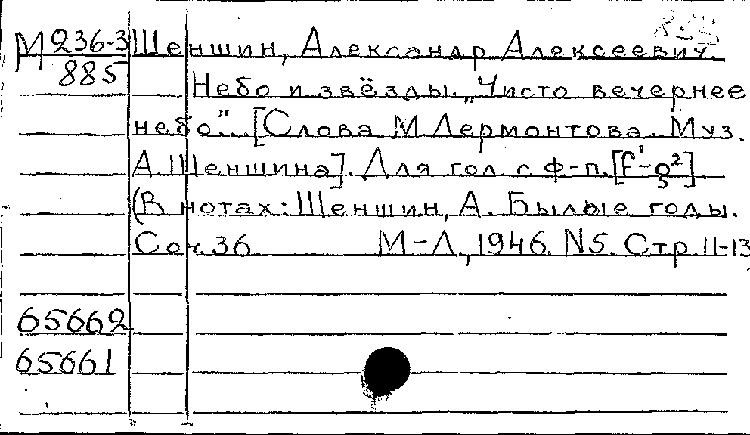 М 236-3 Шеншин, Александр Алексеевич.
885 Небо и звёзды. „Чисто вечернее
небо". [Слова М Лермонтова. Муз.
А. Шеншина]. Для гол с ф-п. [f¹-g²]
(В нотах: Шеншин, А. Былые годы.
Соч. 36 М-Л, 1946. N5. Стр. 11-13
65662
65661